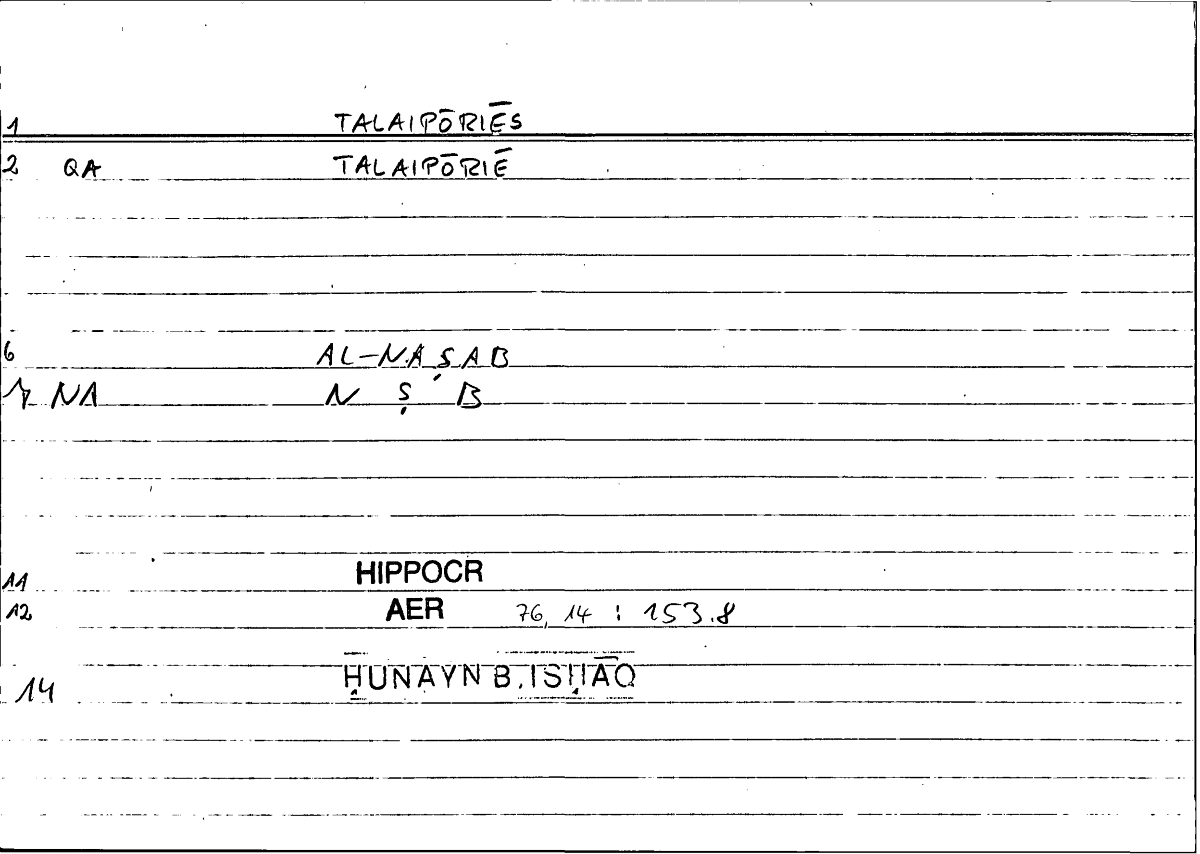 1 TALAIPŌRIĒS
2 QA TALAIPŌRIĒ
6 AL-NAṢAB
7 NA N Ṣ B
11 HIPPOCR
12 AER 76, 14 : 153.8
14 ḤUNAYN B. ISḤĀQ